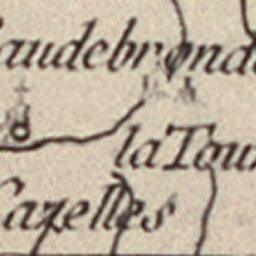 audebrond
la Tour
Cazelles